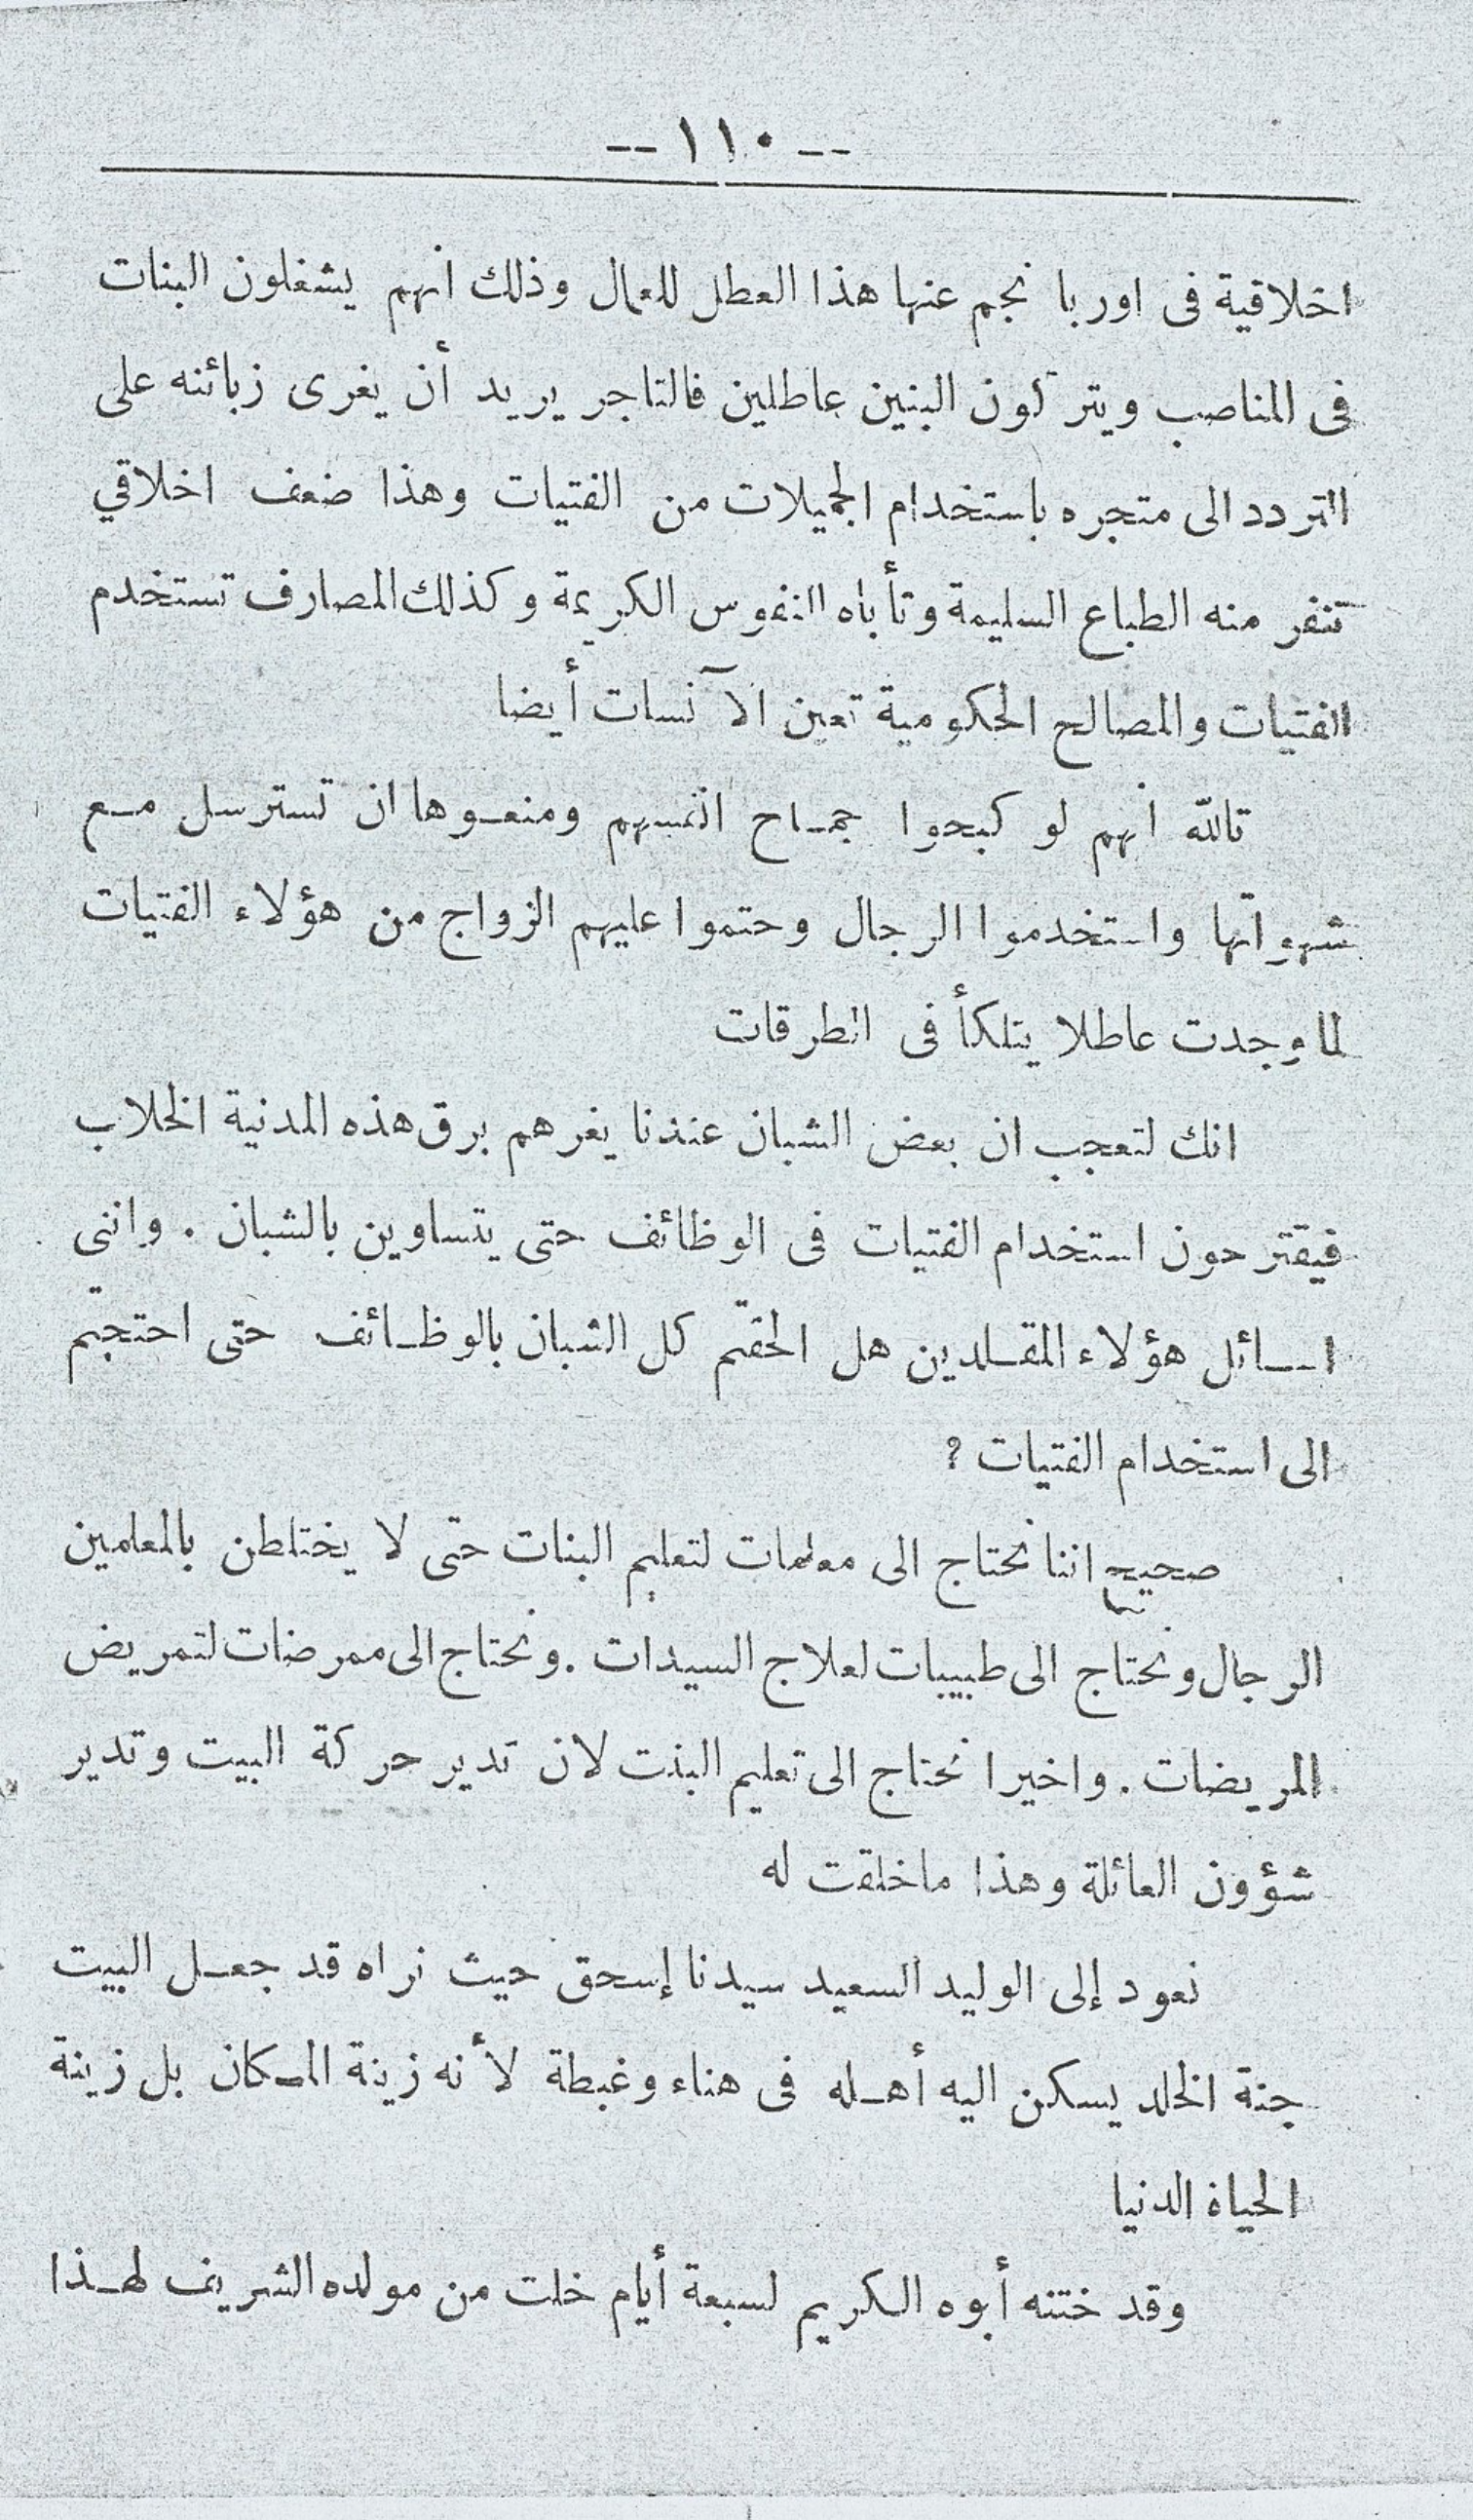 -- ١١٠ --
اخلاقية فى اوربا نجم عنها هذا العطل للعمال وذلك انهم يشغلون البنات
فى المناصب ويتركون البنين عاطلين فالتاجر يريد أن يغرى زبائنه على
التردد الى متجره باستخدام الجميلات من الفتيات وهذا ضعف اخلاقي
تنفر منه الطباع السليمة وتأباه النفوس الكريمة وكذلك المصارف تستخدم
الفتيات والمصالح الحكومية تعين الآنسات أيضا
تالله انهم لو كبحوا جمـاح انفسهم ومنعـوها ان تسترسل مـع
شهواتها واستخدموا الرجال وحتموا عليهم الزواج من هؤلاء الفتيات
لما وجدت عاطلا يتلكأ فى الطرقات
انك لتعجب ان بعض الشبان عندنا يغرهم برق هذه المدنية الخلاب
فيقترحون استخدام الفتيات فى الوظائف حتى يتساوين بالشبان . وإننى
اسـائل هؤلاء المقـلدين هل الحقتم كل الشبان بالوظـائف حتى احتجتم
الى استخدام الفتيات ؟
صحيح اننا نحتاج الى معلمات لتعليم البنات حتى لا يختلطن بالمعلمين
الرجال ونحتاج الى طبيبات لعلاج السيدات . ونحتاج الى ممرضات لتمريض
المريضات . واخيرا نحتاج الى تعليم البنت لان تدير حركة البيت وتدير
شؤون العائلة وهذا ماخلقت له
نعود إلى الوليد السعيد سيدنا إسحق حيث نراه قد جعـل البيت
جنة الخلد يسكن اليه أهـله فى هناء وغبطة لأنه زينة المـكان بل زينة
الحياة الدنيا
وقد ختنه أبوه الـكريم لسبعة أيام خلت من مولده الشريف لهـذا